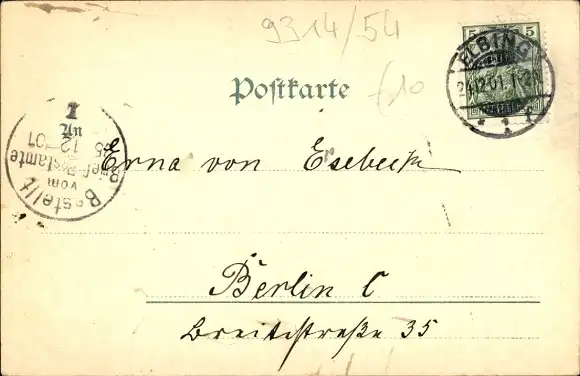 9314/54
5 5
ELBING
24.12.01. 1-2N
* 1 f
Postkarte
£10
1
An
25 12-01
Brief-Postamte
vom
Bestellt
Erna von Esebeck
Berlin C
Breitestraße 35